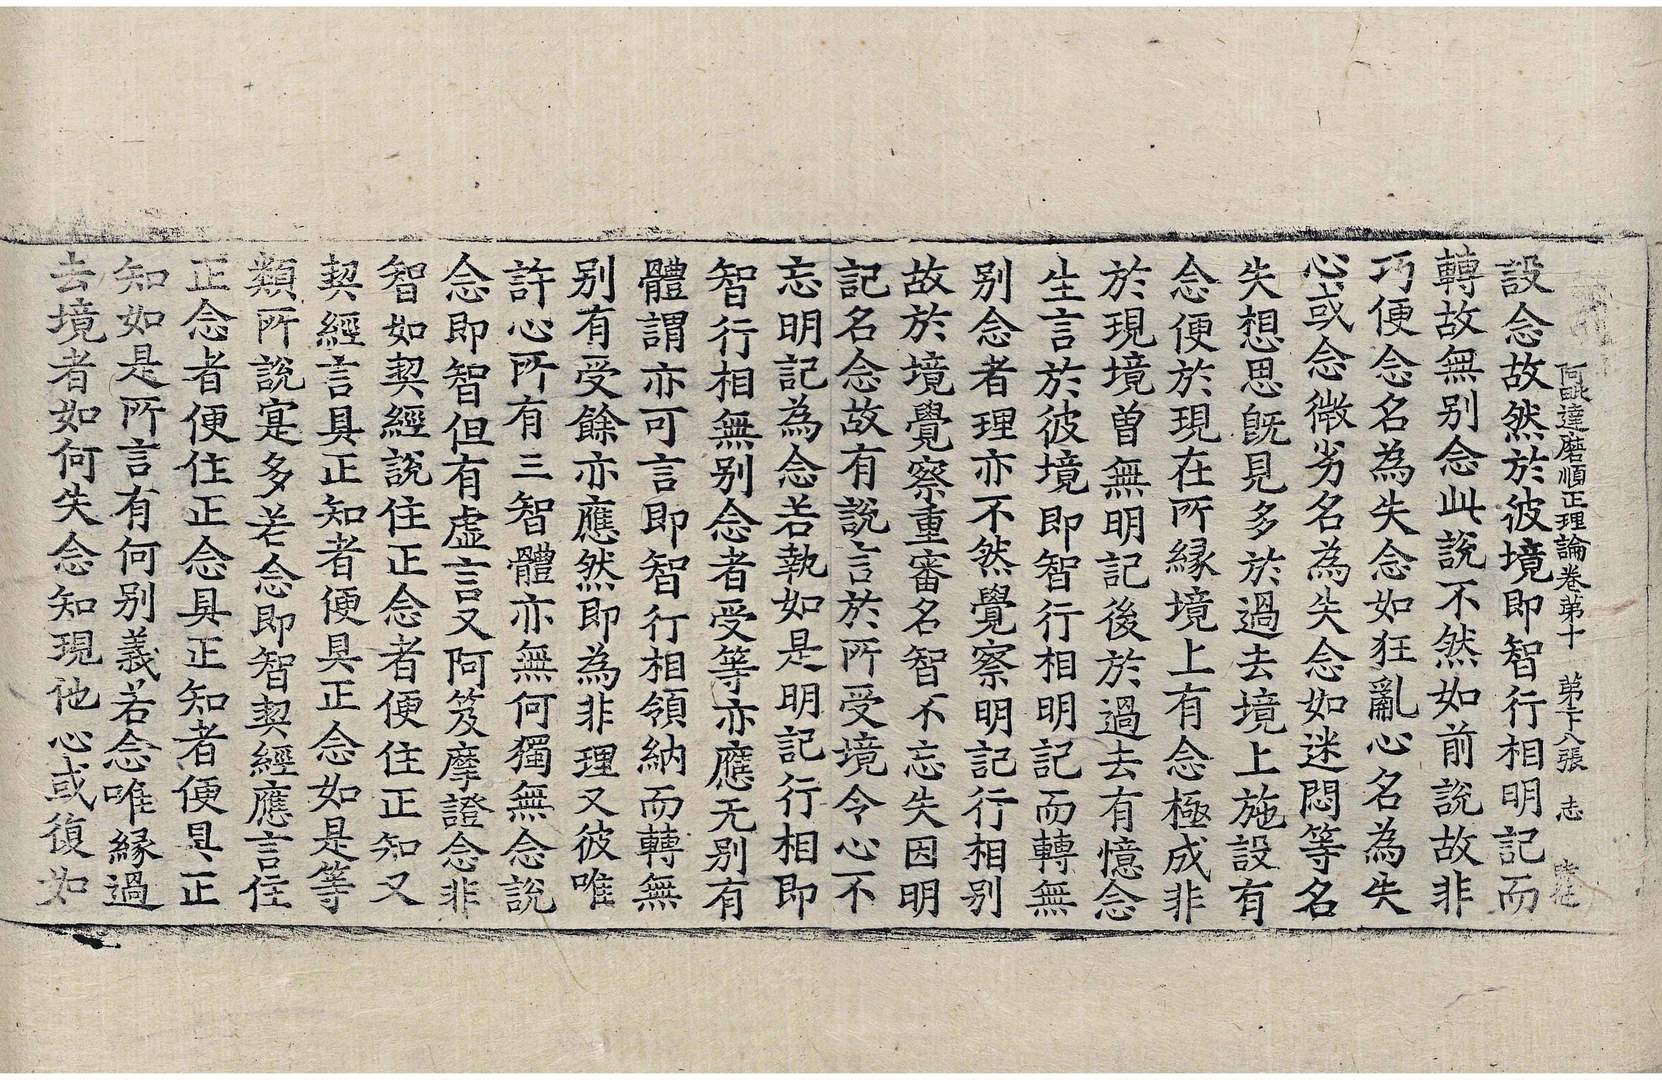 阿毗達磨順正理論卷第十 第十八張 志
設念故然於彼境即智行相明記而
轉故無別念此說不然如前說故非
巧便念名為失念如狂亂心名為失
心或念微劣名為失念如迷悶等名
失想思既見多於過去境上施設有
念便於現在所緣境上有念極成非
於現境曾無明記後於過去有憶念
生言於彼境即智行相明記而轉無
別念者理亦不然覺察明記行相別
故於境覺察重審名智不忘失因明
記名念故有說言於所受境令心不
忘明記為念若執如是明記行相即
智行相無別念者受等亦應无別有
體謂亦可言即智行相領納而轉無
別有受餘亦應然即為非理又彼唯
許心所有三智體亦無何獨無念說
念即智但有虛言又阿笈摩證念非
智如契經說住正念者便住正知又
契經言具正知者便具正念如是等
類所說寔多若念即智契經應言住
正念者便住正念具正知者便具正
知如是所言有何別義若念唯緣過
去境者如何失念知現他心或復如